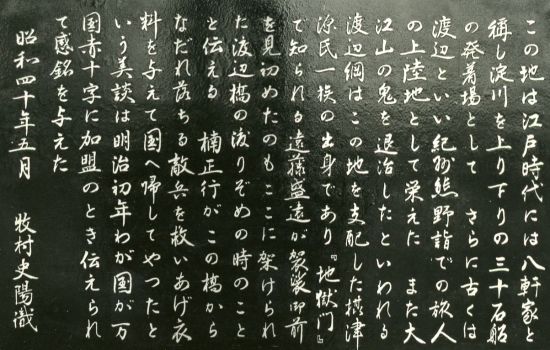 この地は江戸時代には八軒家と
稱し淀川を上り下りの三十石船
の発着場として さらに古くは
渡辺といい紀州熊野詣での旅人
の上陸地として栄えた また大
江山の鬼を退治したといわれる
渡辺綱はこの地を支配した摂津
源氏一族の出身であり『地獄門』
で知られる遠藤盛遠が袈裟御前
を見初めたのもここに架けられ
た渡辺橋の渡りぞめの時のこと
と伝える 楠正行がこの橋から
なだれ落ちる敵兵を救いあげ衣
料を与えて国へ帰してやつたと
いう美談は明治初年わが国が万
国赤十字に加盟のとき伝えられ
て感銘を与えた
昭和四十年五月 牧村史陽識